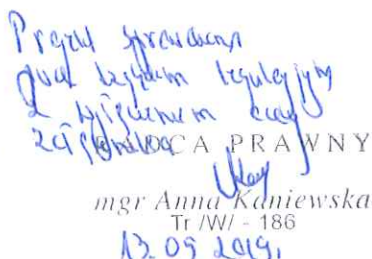 Projekt sprawdzono
pod względem legislacyjnym
z wyłączeniem
załącznika
RADCA PRAWNY
mgr Anna Kaniewska
Tr /W/ - 186
13.09.2019,